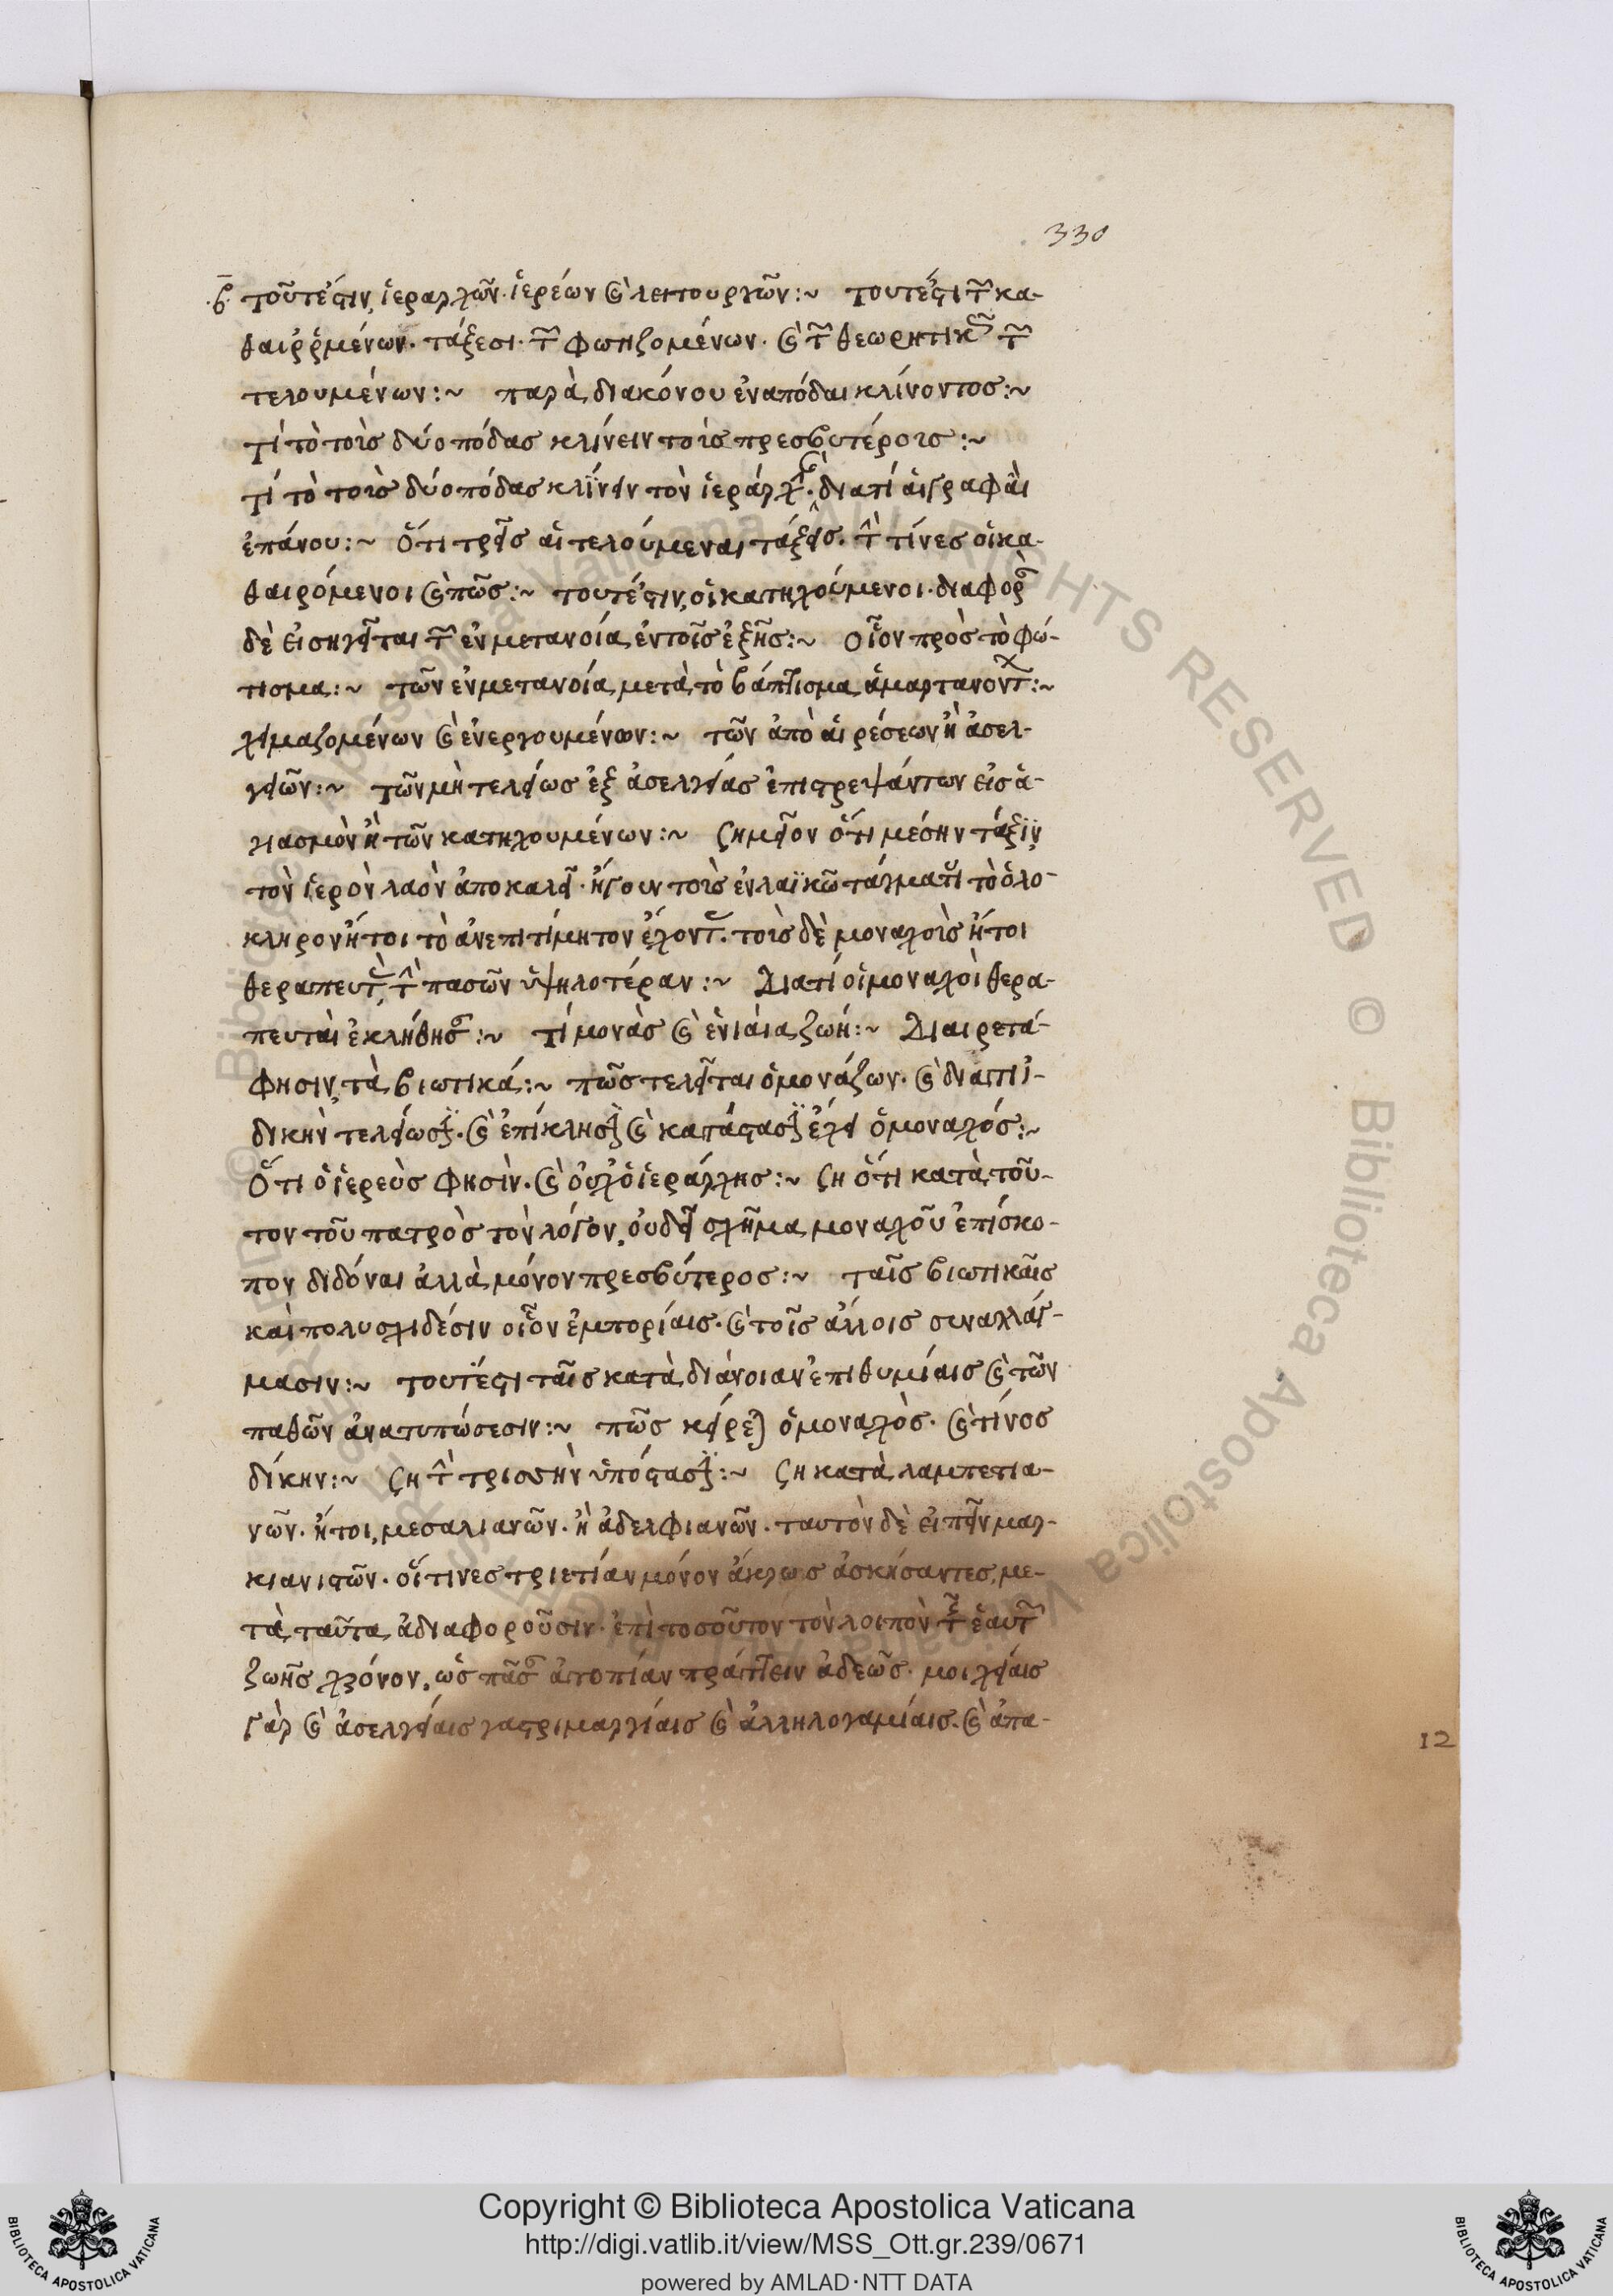 330
.β. τοῦτέστιν, ἱεραρχῶν· ἱερέων καὶ λειτουργῶν:~ τουτέστι τῶν κα-
θαιρομένων· τάξεσι· τῶν φωτιζομένων· καὶ τῶν θεωρητικῶν τῶν
τελουμένων:~ παρὰ διακόνου ἕνα πόδαι κλίνοντος:~
τί τὸ τοὺς δύο πόδας κλίνειν τοὺς πρεσβυτέρους:~
τί τὸ τοὺς δύο πόδας κλίνειν τὸν ἱεράρχην· καὶ διατί αἱ γραφαὶ
ἐπάνου:~ ὅτι τρεῖς αἱ τελούμεναι τάξεις. τὸ τίνες οἱ κα-
θαιρόμενοι καὶ πῶς:~ τουτέστιν, οἱ κατηχούμενοι· διαφορὰς
δὲ εἰσηγεῖται τῶν ἐν μετανοία ἐν τοῖς ἑξῆς:~ οἷον πρὸς τὸ φώ-
τισμα:~ τῶν ἐν μετανοία μετὰ τὸ βάπτισμα ἁμαρτανόντων:~
χειμαζομένων καὶ ἐνεργουμένων:~ τῶν ἀπὸ αἱρέσεων ἢ ἀσελ-
γειῶν:~ τῶν μὴ τελείως ἐξ ἀσελγείας ἐπιστρεψάντων εἰς ἁ-
γιασμὸν ἢ τῶν κατηχουμένων:~ ση μεῖον ὅτι μέσην τάξιν
τὸν ἱερὸν λαὸν ἀποκαλεῖ· ἤγουν τοὺς ἐν λαϊκῶ τάγματι τὸ ὁλό-
κληρον ἤτοι τὸ ἀνεπιτίμητον ἔχοντας. τοὺς δὲ μοναχοὺς ἤτοι
θεραπευτὰς, τὴν πασῶν ὑψηλοτέραν:~ Διατί οἱ μοναχοὶ θερα-
πευταὶ ἐκλήθησαν:~ τί μονὰς καὶ ἑνιαία ζωή:~ Διαιρετά
φησιν, τὰ βιωτικά:~ πῶς τελεῖται ὁ μονάζων· καὶ διατί ἰ-
δικὴν τελείωσιν· καὶ ἐπίκλησιν καὶ κατάστασιν ἔχει ὁ μοναχός:~
Ὅτι ὁ ἱερεὺς φησὶν· καὶ οὐχ ὁ ἱεράρχης:~ ση ὅτι κατὰ τοῦ-
τον τοῦ πατρὸς τὸν λόγον, οὐδεῖ σχῆμα μοναχοῦ ἐπίσκο-
πον διδόναι ἀλλὰ μόνον πρεσβύτερος:~ ταῖς βιωτικαῖς
καὶ πολυσχιδέσιν οἷον ἐμπορίαις· καὶ τοῖς ἄλλοις συναλλάγ-
μασιν:~ τουτέστι ταῖς κατὰ διάνοιαν ἐπιθυμίαις καὶ τῶν
παθῶν ἀνατυπώσεσιν:~ πῶς κείρεται ὁ μοναχὸς· καὶ τίνος
δίκην:~ ση τὴν τρισσὴν ὑπόστασιν:~ ση κατὰ λαμπετια-
νῶν· ἤτοι, μεσαλιανῶν· ἢ ἀδελφιανῶν· ταυτὸν δὲ εἰπεῖν μαρ-
κιανιστῶν· οἵτινες τριετίαν μόνον ἄκρως ἀσκήσαντες, με-
τὰ ταῦτα ἀδιαφοροῦσιν· ἐπὶ τοσοῦτον τὸν λοιπὸν τῆς ἑαυτῶν
ζωῆς χρόνον, ὡς πᾶσαν ἀτοπίαν πράττειν ἀδεῶς· μοιχείαις
γὰρ καὶ ἀσελγείαις γαστριμαργίαις καὶ ἀλληλογαμίαις· καὶ ἁπα-
12
Copyright © Biblioteca Apostolica Vaticana
http://digi.vatlib.it/view/MSS_Ott.gr.239/0671
powered by AMLAD·NTT DATA